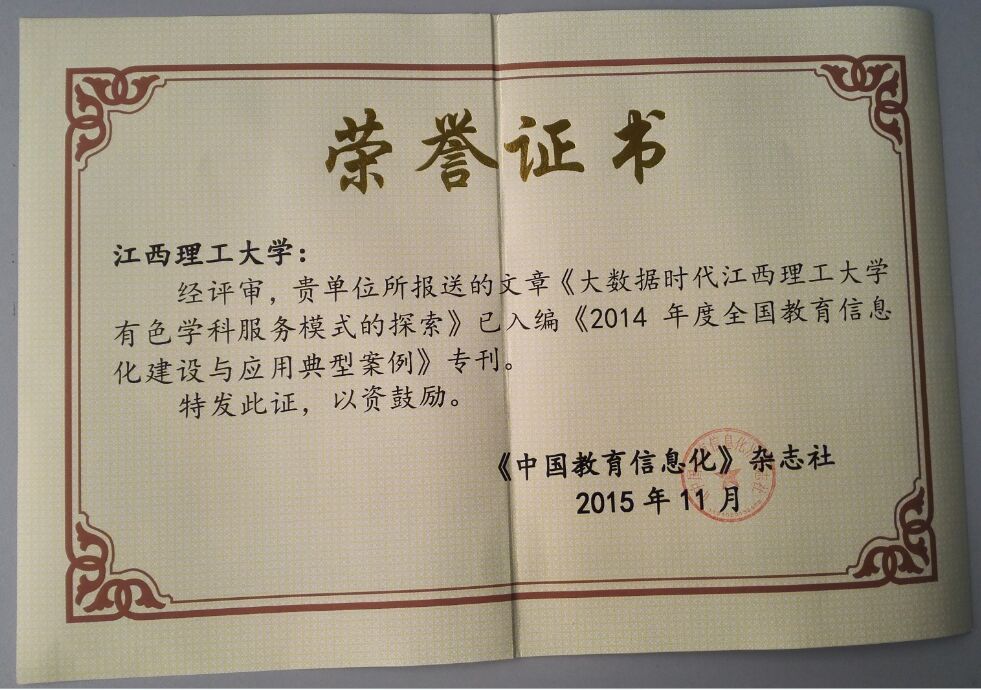 荣誉证书
江西理工大学：
经评审，贵单位所报送的文章《大数据时代江西理工大学
有色学科服务模式的探索》已入编《2014 年度全国教育信息
化建设与应用典型案例》专刊。
特发此证，以资鼓励。
《中国教育信息化》杂志社
2015 年 11 月